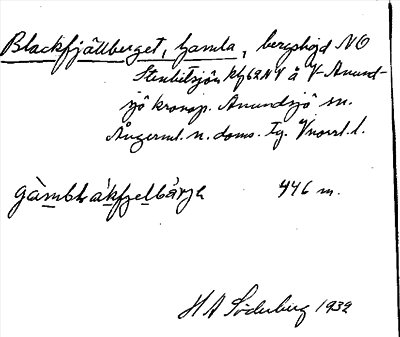 Blackfjällberget, Gamla, bergshöjd NO
Stenbitsjön kf62NV å V Anund-
sjö kronop. Anundsjö sn.
Ångerml. n. doms. tg. Vnorrl. l.
446 m.
H A Söderberg 1932